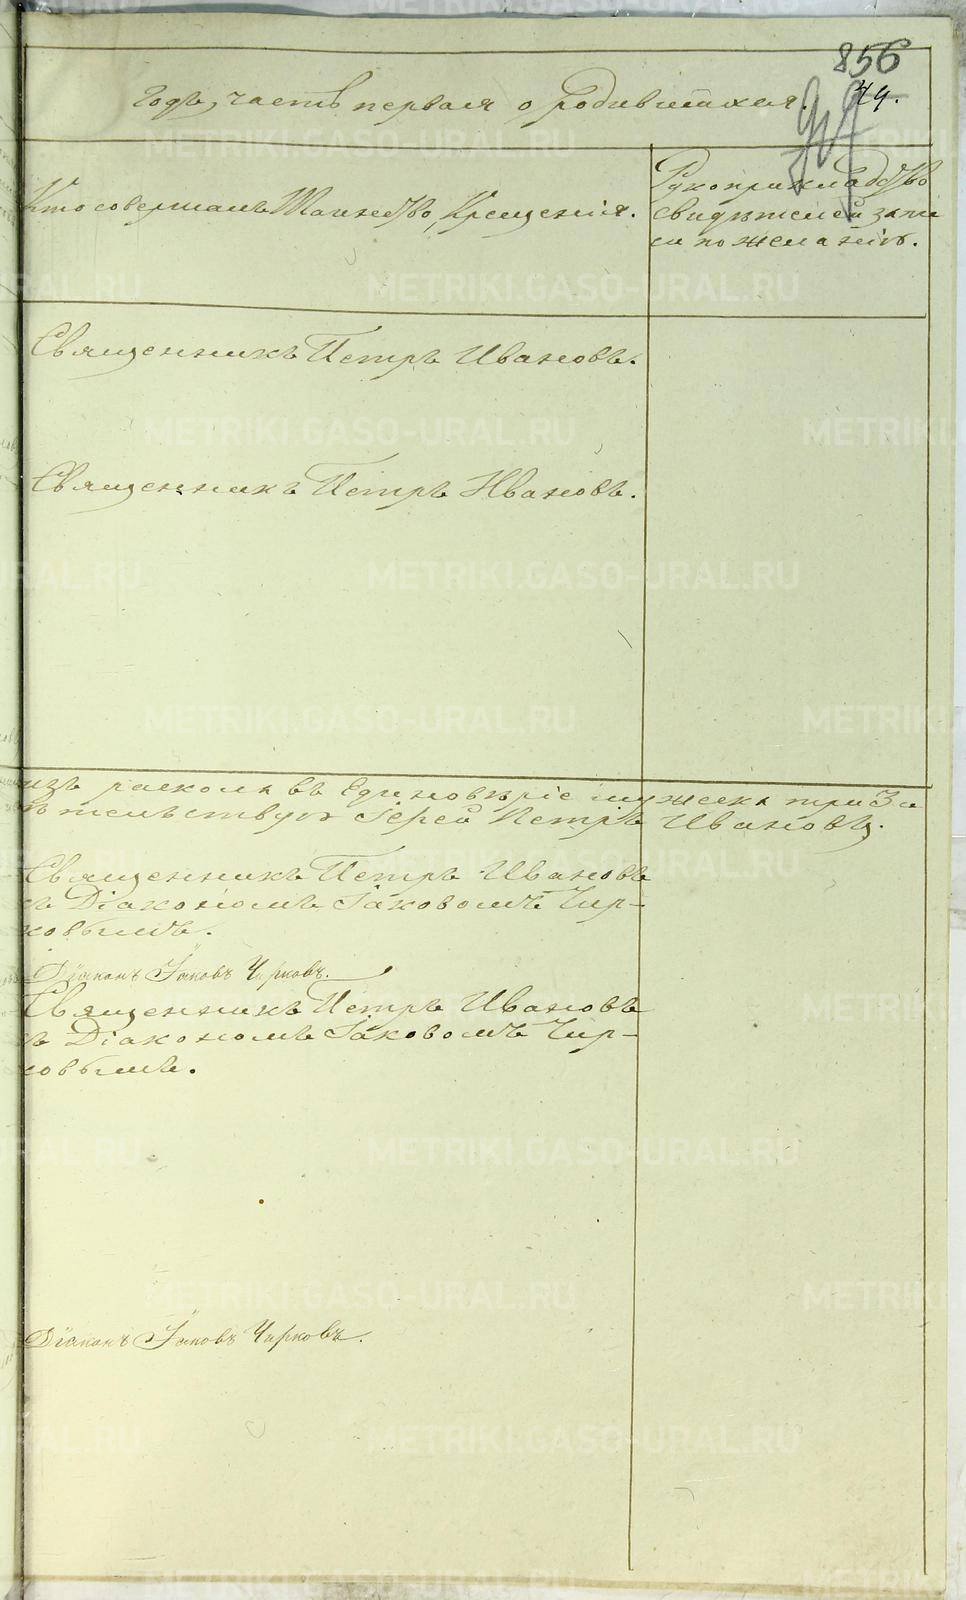 856
74.
годъ, часть первая о родившихся.
Кто совершалъ Таинство, Крещенія.
Рукоприкладство
свидѣтелей запи
си по желанію.
Священникъ Петръ Ивановъ.
Священникъ Петръ Ивановъ.
изъ раскола въ Единовѣріе мужеска три За
тельствуо Іерей Петръ Ивановъ.
Священникъ Петръ Ивановъ
съ Діакономъ Іаковомъ Чир-
ковымъ.
Діаконъ Іаковъ Чирковъ.
Священникъ Петръ Ивановъ
съ Діакономъ Іаковомъ Чир-
ковымъ.
Діаконъ Іаковъ Чирковъ.
METRIKI.GASO-URAL.RU